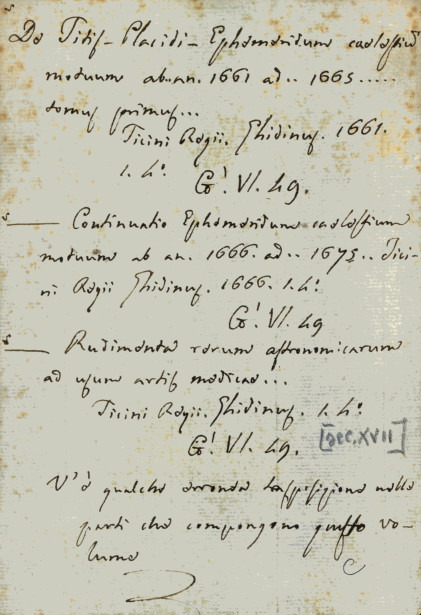 De Titis - Placidi - Ephemeridum caelestiu
motuum ab an. 1661 ad .. 1665 .....
tomus primus ...
Ticini Regii. Ghidinus. 1661.
1. 4.°
G! VI. 49.
Continuatio Ephemeridum caelestium
motuum ab an. 1666. ad .. 1675 .. Tici-
ni Regii Ghidinus. 1666. 1. 4.°
G! VI. 49
Rudimenta rerum astronomicarum
ad usum artis medicae ...
Ticini Regii. Ghidinus. 1. 4.°
[sec. XVII]
G! VI. 49.
V'è qualche erronea trasposizione nelle
parti che compongono questo vo-
lume